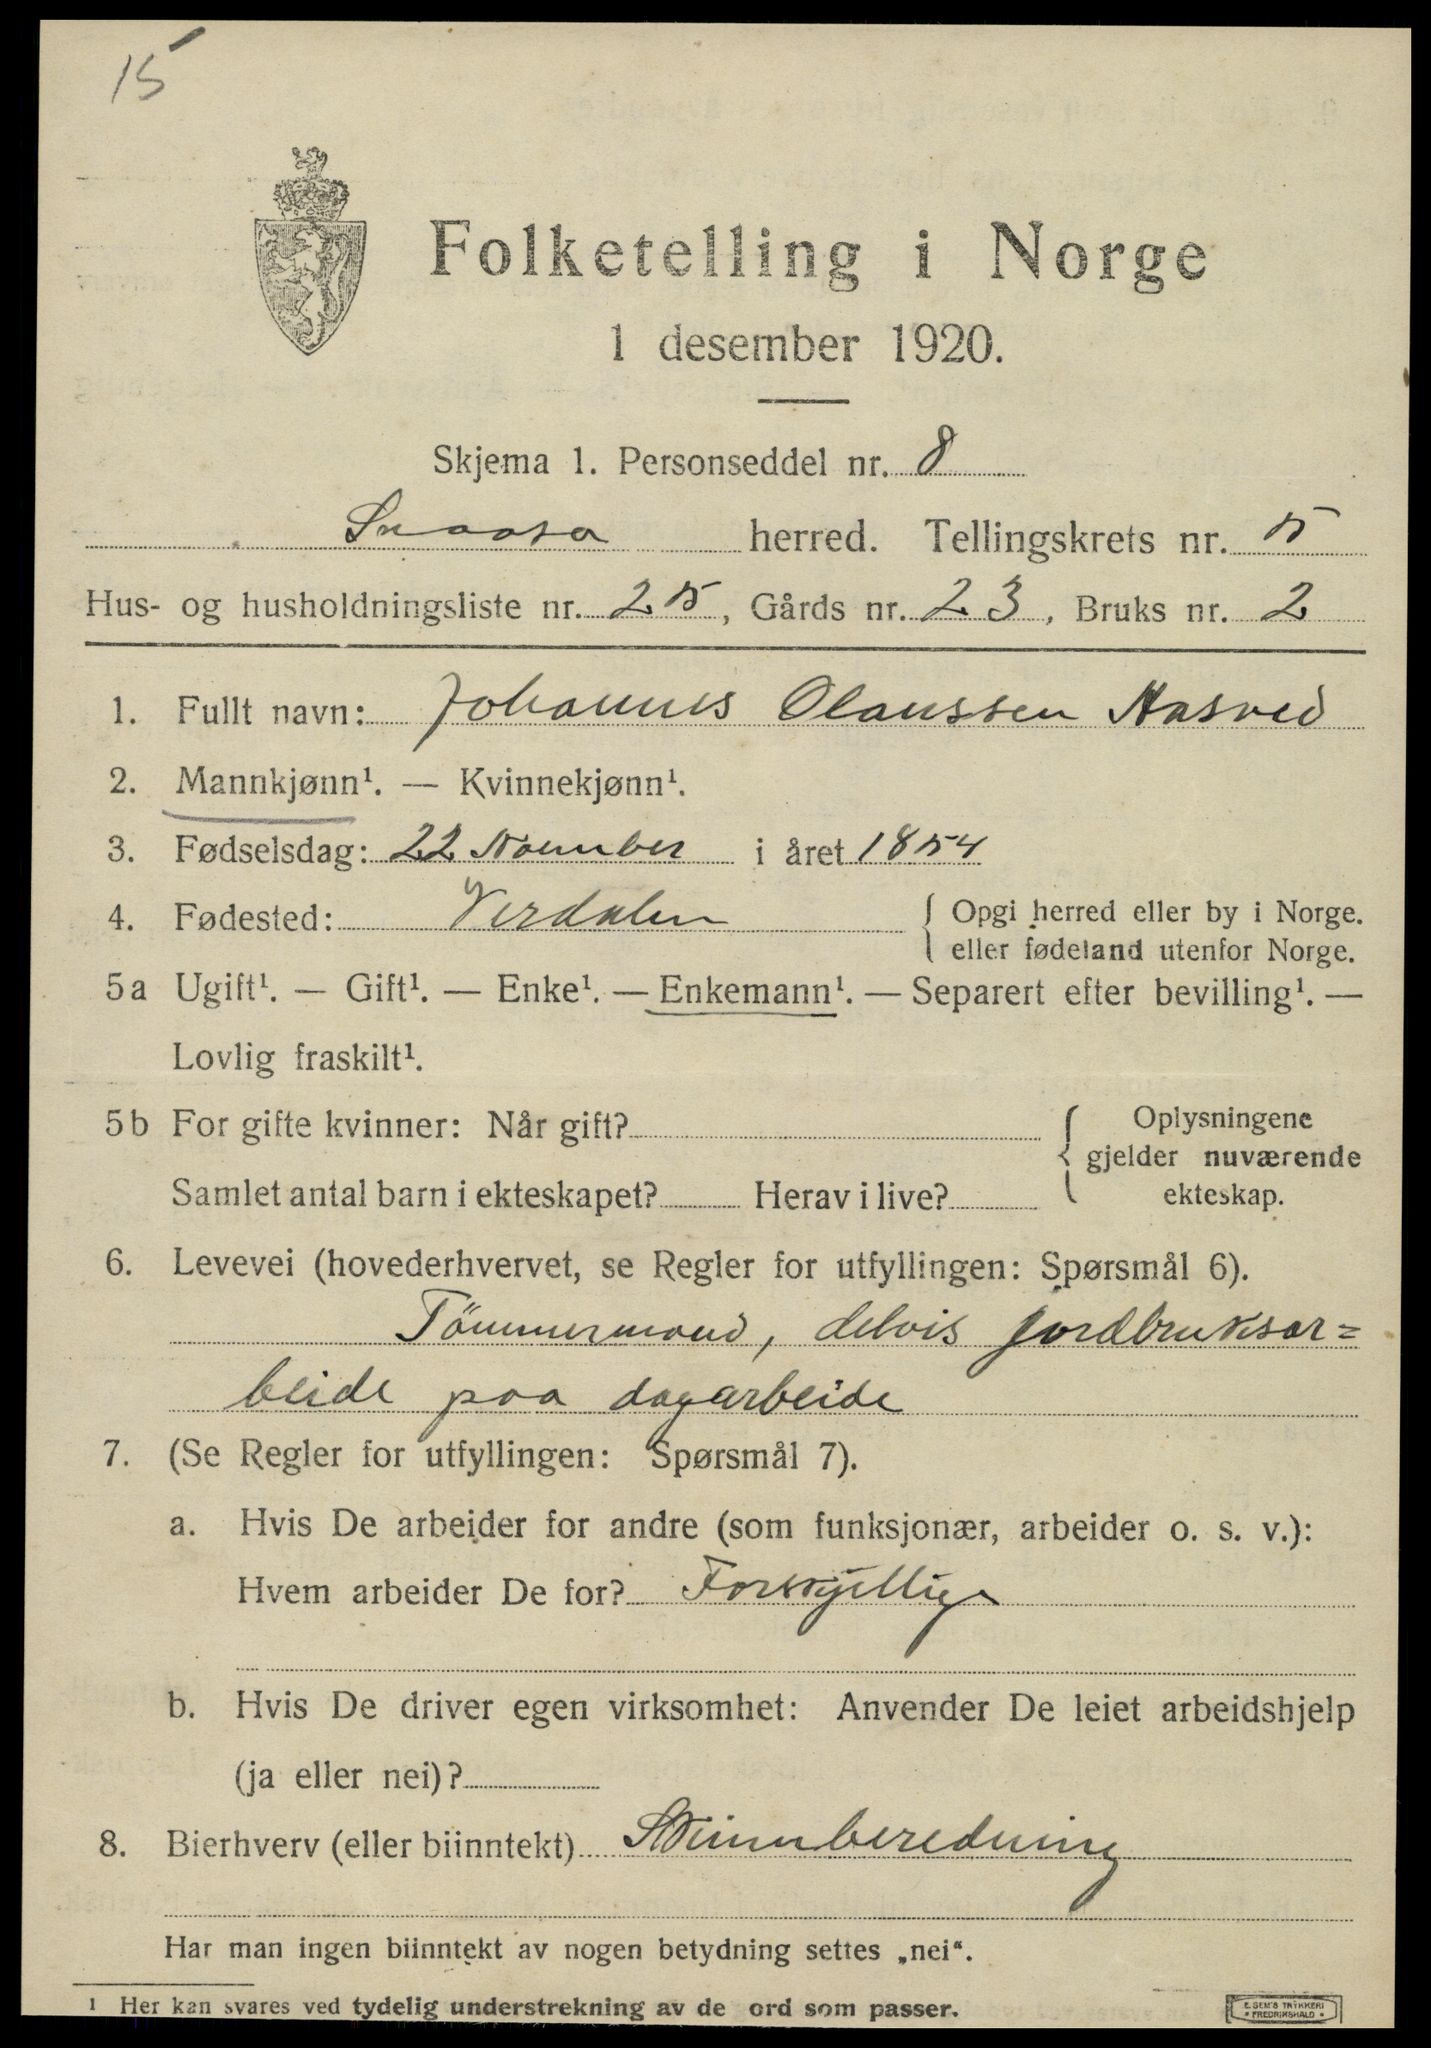 15
Folketelling i Norge
1 desember 1920.
Skjema 1. Personseddel nr. 8
Snaasa herred. Tellingskrets nr. 5
Hus- og husholdningsliste nr. 25, Gårds nr. 23, Bruks nr. 2
1. Fullt navn: Johannes Olaussen Aasved
2. Mannkjønn¹. — Kvinnekjønn¹.
3. Fødselsdag: 22 November i året 1854
4. Fødested: Verdalen { Opgi herred eller by i Norge.
eller fødeland utenfor Norge.
5a Ugift¹. — Gift¹. — Enke¹. — Enkemann¹. — Separert efter bevilling¹. —
Lovlig fraskilt¹.
5b For gifte kvinner: Når gift? { Oplysningene
gjelder nuværende
Samlet antal barn i ekteskapet? Herav i live? ekteskap.
6. Levevei (hovederhvervet, se Regler for utfyllingen: Spørsmål 6).
Tömmermand, delvis jordbruksar=
beide paa dagarbeide
7. (Se Regler for utfyllingen: Spørsmål 7).
a. Hvis De arbeider for andre (som funksjonær, arbeider o. s. v.):
Hvem arbeider De for? Forskjellige
b. Hvis De driver egen virksomhet: Anvender De leiet arbeidshjelp
(ja eller nei)?
8. Bierhverv (eller biinntekt) Skinnberedning
Har man ingen biinntekt av nogen betydning settes „nei“.
1 Her kan svares ved tydelig understrekning av de ord som passer.
E. SEM'S TRYKKERI
• FREDRIKSHALD •